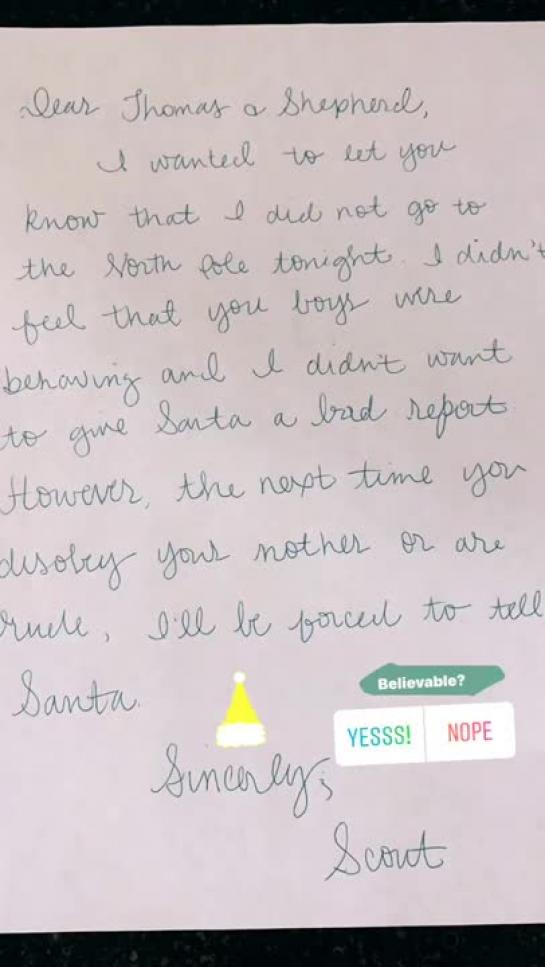 Dear Thomas & Shepherd,
I wanted to let you
know that I did not go to
the North Pole tonight. I didn't
feel that you boys were
behaving and I didn't want
to give Santa a bad report.
However, the next time you
disobey your mother or are
rude, I'll be forced to tell
Santa.
Believable?
YESSS! NOPE
Sincerly,
Scout